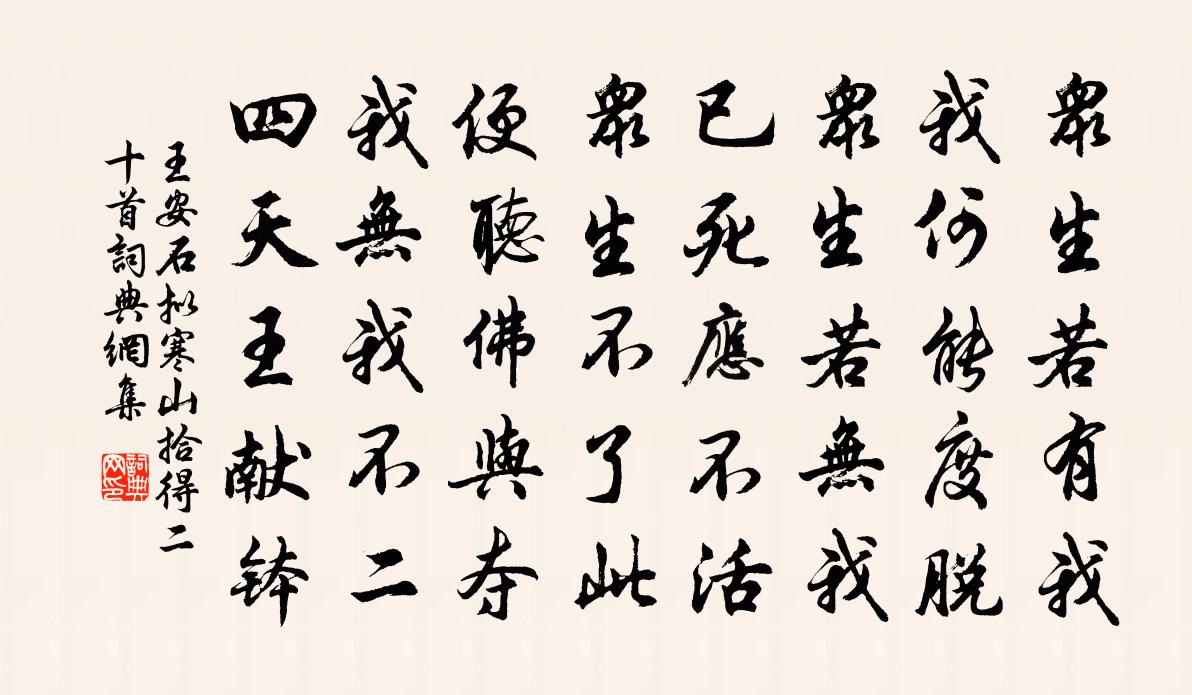 眾生若有我
我何能度脫
眾生若無我
已死應不活
眾生不了此
便聽佛與夺
我無我不二
四天王献钵
王安石拟寒山拾得二
十首詞典網集
詞典
网印